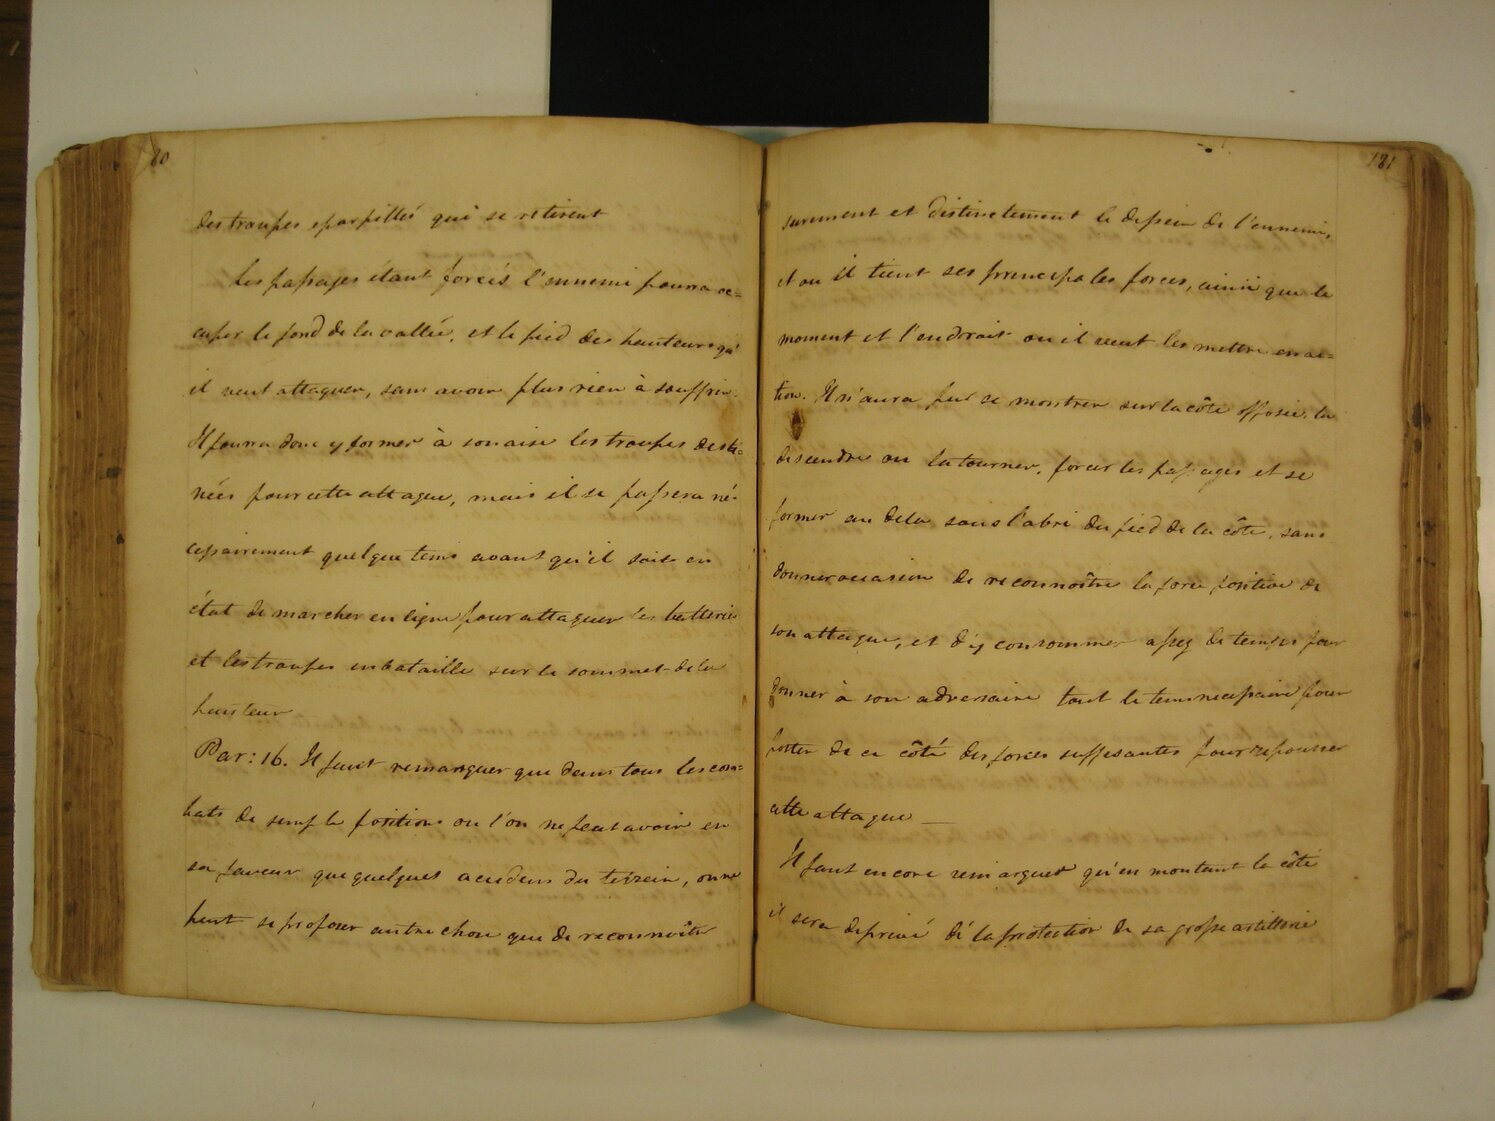 80
des troupes eparpilleé qui se retirent
Les passages étant forcés l'ennemi pourra oc=
cuper le fond de la vallée, et le pied des hauteurs qu'
il veut attaquer, sans avoir plus rien à souffrir.
Il pourra donc y former à son aise les troupes desti=
nées pour cette attaque, mais il se passera né=
cessairement quelque tems avant qu'il soit en
état de marcher en ligne pour attaquer les batteries
et les troupes en bataille sur le sommet de la
hauteur
Par: 16. Il faut remarquer que dans tous les com=
bats de simple positions ou l'on ne peut avoir en
sa faveur que quelques accidens du terrein, on ne
peut se proposer autre chose que de reconnoître
181
surement et distinctement le dessein de l'ennemi,
et ou il tient ses principales forces, ainsi que le
moment et l'endroit ou il veut les mettre en ac=
tion. Il n'aura pu se montrer sur la côte opposée, la
descendre ou la tourner, forcer les passages et se
former au dela sous l'abri du pied de la côte, sans
donner occasion de reconnoître la force positive de
son attaque, et d'y consommer assez de temps pour
donner à son adversaire tout le tems necessaire pour
porter de ce côté des forces suffisantes pour repousser
cette attaque —
Il faut encore remarquer qu'en montant la côté
il sera deprivé dé la protection de sa grosse artillerie